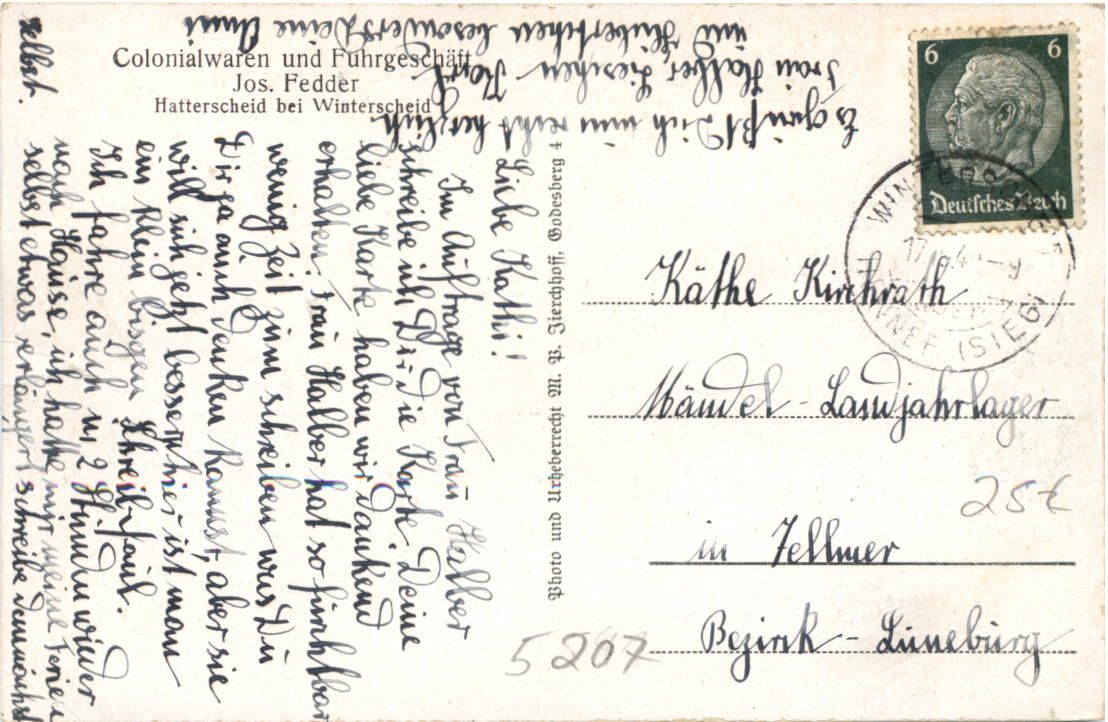 Colonialwaren und Fuhrgeschäft
Jos. Fedder
Hatterscheid bei Winterscheid
Liebe Kathi!
Im Auftrage von Frau Halber
schreibe ich Dir die Karte. Deine
liebe Karte haben wir dankend
erhalten. Frau Halber hat so furchtbar
wenig Zeit zum schreiben was Du
Dir ja auch denken kannst, aber sie
will sich jetzt bessern, hier ist man
ein klein bisgen Schreib-faul.
Ich fahre auch in 2 Stunden wieder
nach Hause, ich hatte mir meine Ferien
selbst etwas verlängert schreibe demnächst
selbst.
Es grüßt Dich nun recht herzlich
Frau Halber, Lieschen, Karl
und Hubertchen besonders Deine Anni
Photo und Urheberrecht M. P. Zierchhoff, Godesberg 4
6 6
Deutsches Reich
HENNEF (SIEG)
Käthe Kirchrath
Mädel-Landjahrlager
25€
in Jellmer
Bezirk-Lüneburg
5207